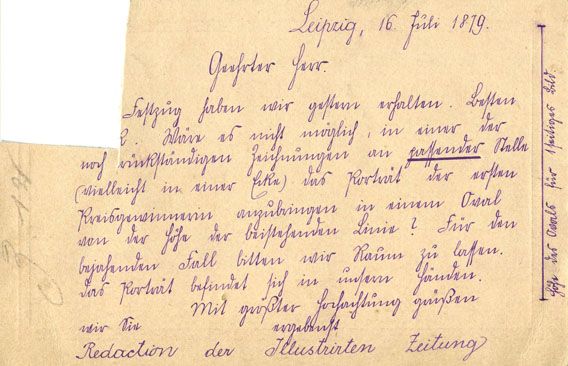 Leipzig, 16. Juli 1879.
Geehrter Herr.
Festzug haben wir gestern erhalten. Besten
k. Wäre es nicht möglich, in einer der
noch rückständigen Zeichnungen an passender Stelle
(vielleicht in einer Ecke) das Porträt der ersten
Preisgewinnerin anzubringen in einem Oval
von der Höhe der beistehenden Linie? Für den
bejahenden Fall bitten wir Raum zu lassen.
Das Porträt befindet sich in unsern Händen.
Mit größter Hochachtung grüßen
wir Sie ergebenst
Redaction der Illustrirten Zeitung
Höhe des Ovals für 1seitiges Bild.